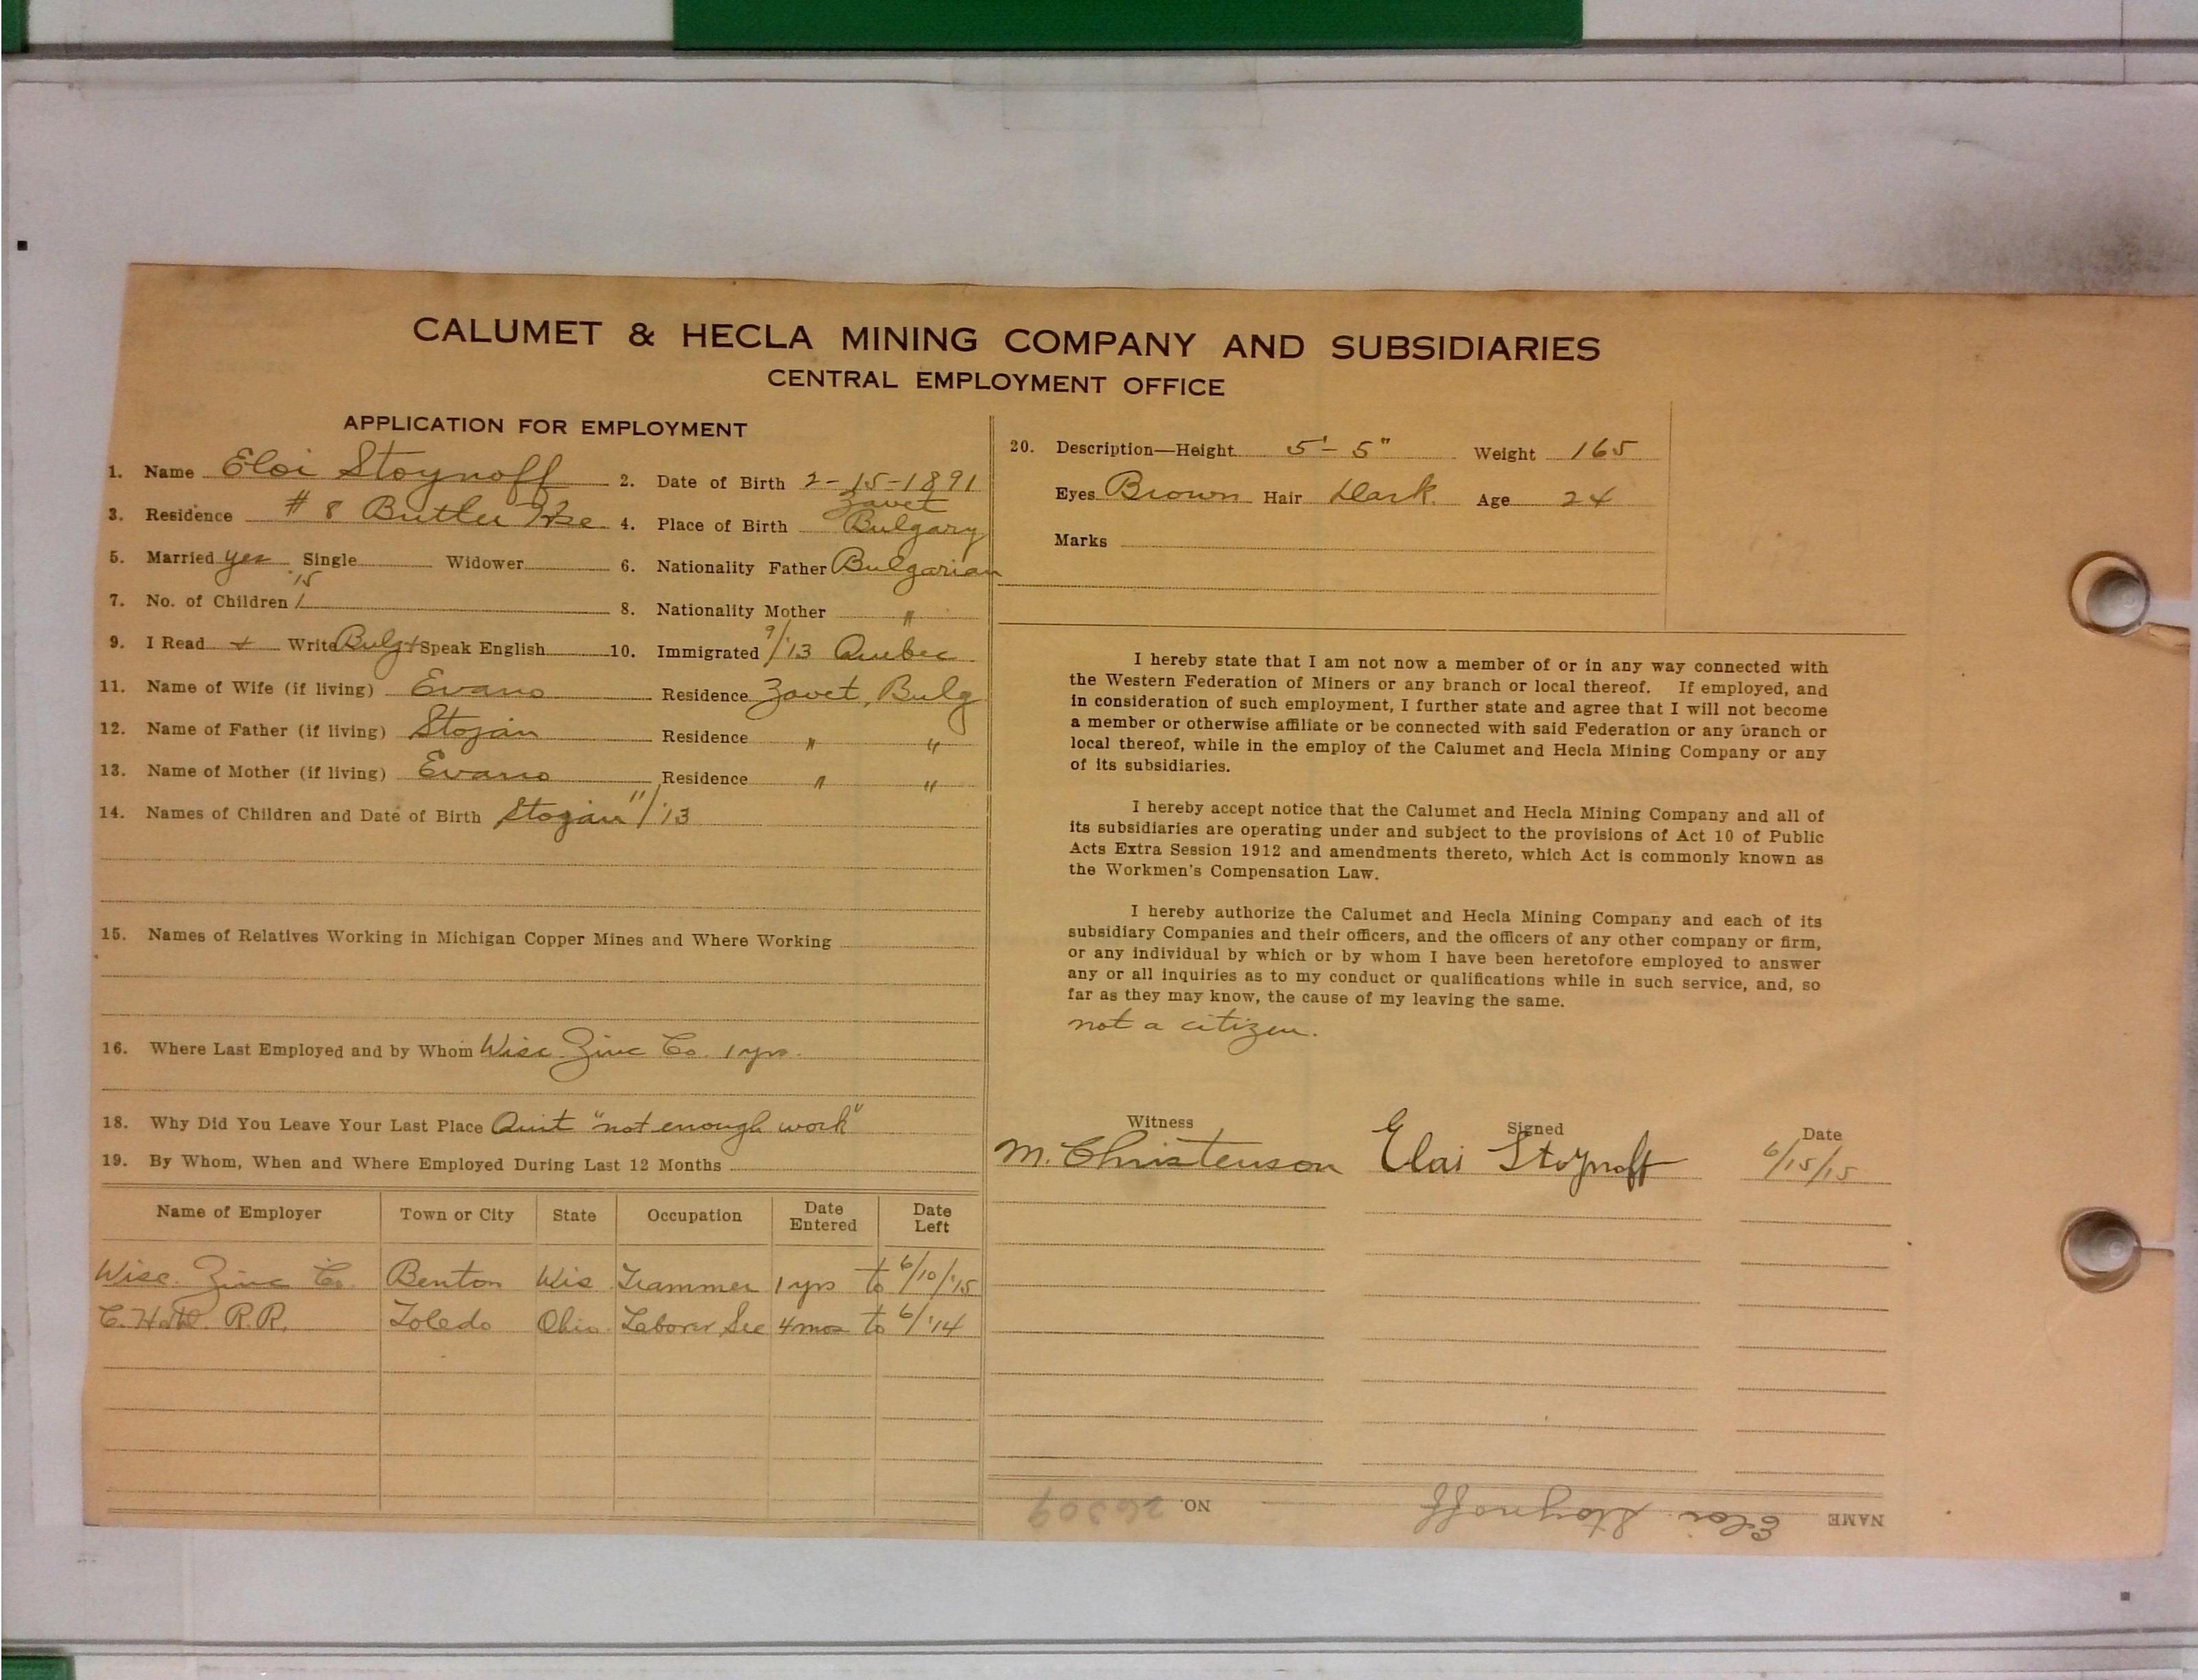 CALUMET & HECLA MINING COMPANY AND SUBSIDIARIES
CENTRAL EMPLOYMENT OFFICE
APPLICATION FOR EMPLOYMENT
1. Name Eloi Stoynoff 2. Date of Birth 2-15-1891
3. Residence # 8 Butler 4. Place of Birth Zavet Bulgary
5. Married yes Single Widower 6. Nationality Father Bulgarian
'15
7. No. of Children 1 8. Nationality Mother "
9. I Read + Write Bulg + Speak English 10. Immigrated 9/'13 Quebec
11. Name of Wife (if living) Evano Residence Zavet, Bulg
12. Name of Father (if living) Stojan Residence " "
13. Name of Mother (if living) Evano Residence " "
14. Names of Children and Date of Birth Stojan 11/'13
15. Names of Relatives Working in Michigan Copper Mines and Where Working
16. Where Last Employed and by Whom Wisc Zinc Co. 1 yrs.
18. Why Did You Leave Your Last Place Quit "not enough work"
19. By Whom, When and Where Employed During Last 12 Months
Name of Employer Town or City State Occupation Date Entered Date Left
Wisc. Zinc Co. Benton Wis Trammer 1 yrs to 6/10/'15
C. H. & D. R.R. Toledo Ohio. Laborer Sec 4 mos to 6/'14
20. Description—Height 5'-5" Weight 165
Eyes Brown Hair Dark. Age 24
Marks
I hereby state that I am not now a member of or in any way connected with
the Western Federation of Miners or any branch or local thereof. If employed, and
in consideration of such employment, I further state and agree that I will not become
a member or otherwise affiliate or be connected with said Federation or any branch or
local thereof, while in the employ of the Calumet and Hecla Mining Company or any
of its subsidiaries.
I hereby accept notice that the Calumet and Hecla Mining Company and all of
its subsidiaries are operating under and subject to the provisions of Act 10 of Public
Acts Extra Session 1912 and amendments thereto, which Act is commonly known as
the Workmen's Compensation Law.
I hereby authorize the Calumet and Hecla Mining Company and each of its
subsidiary Companies and their officers, and the officers of any other company or firm,
or any individual by which or by whom I have been heretofore employed to answer
any or all inquiries as to my conduct or qualifications while in such service, and, so
far as they may know, the cause of my leaving the same.
not a citizen.
Witness Signed Date
M. Christenson Elai Stoynoff 6/15/15
NAME Eloi Stoynoff NO. 26309